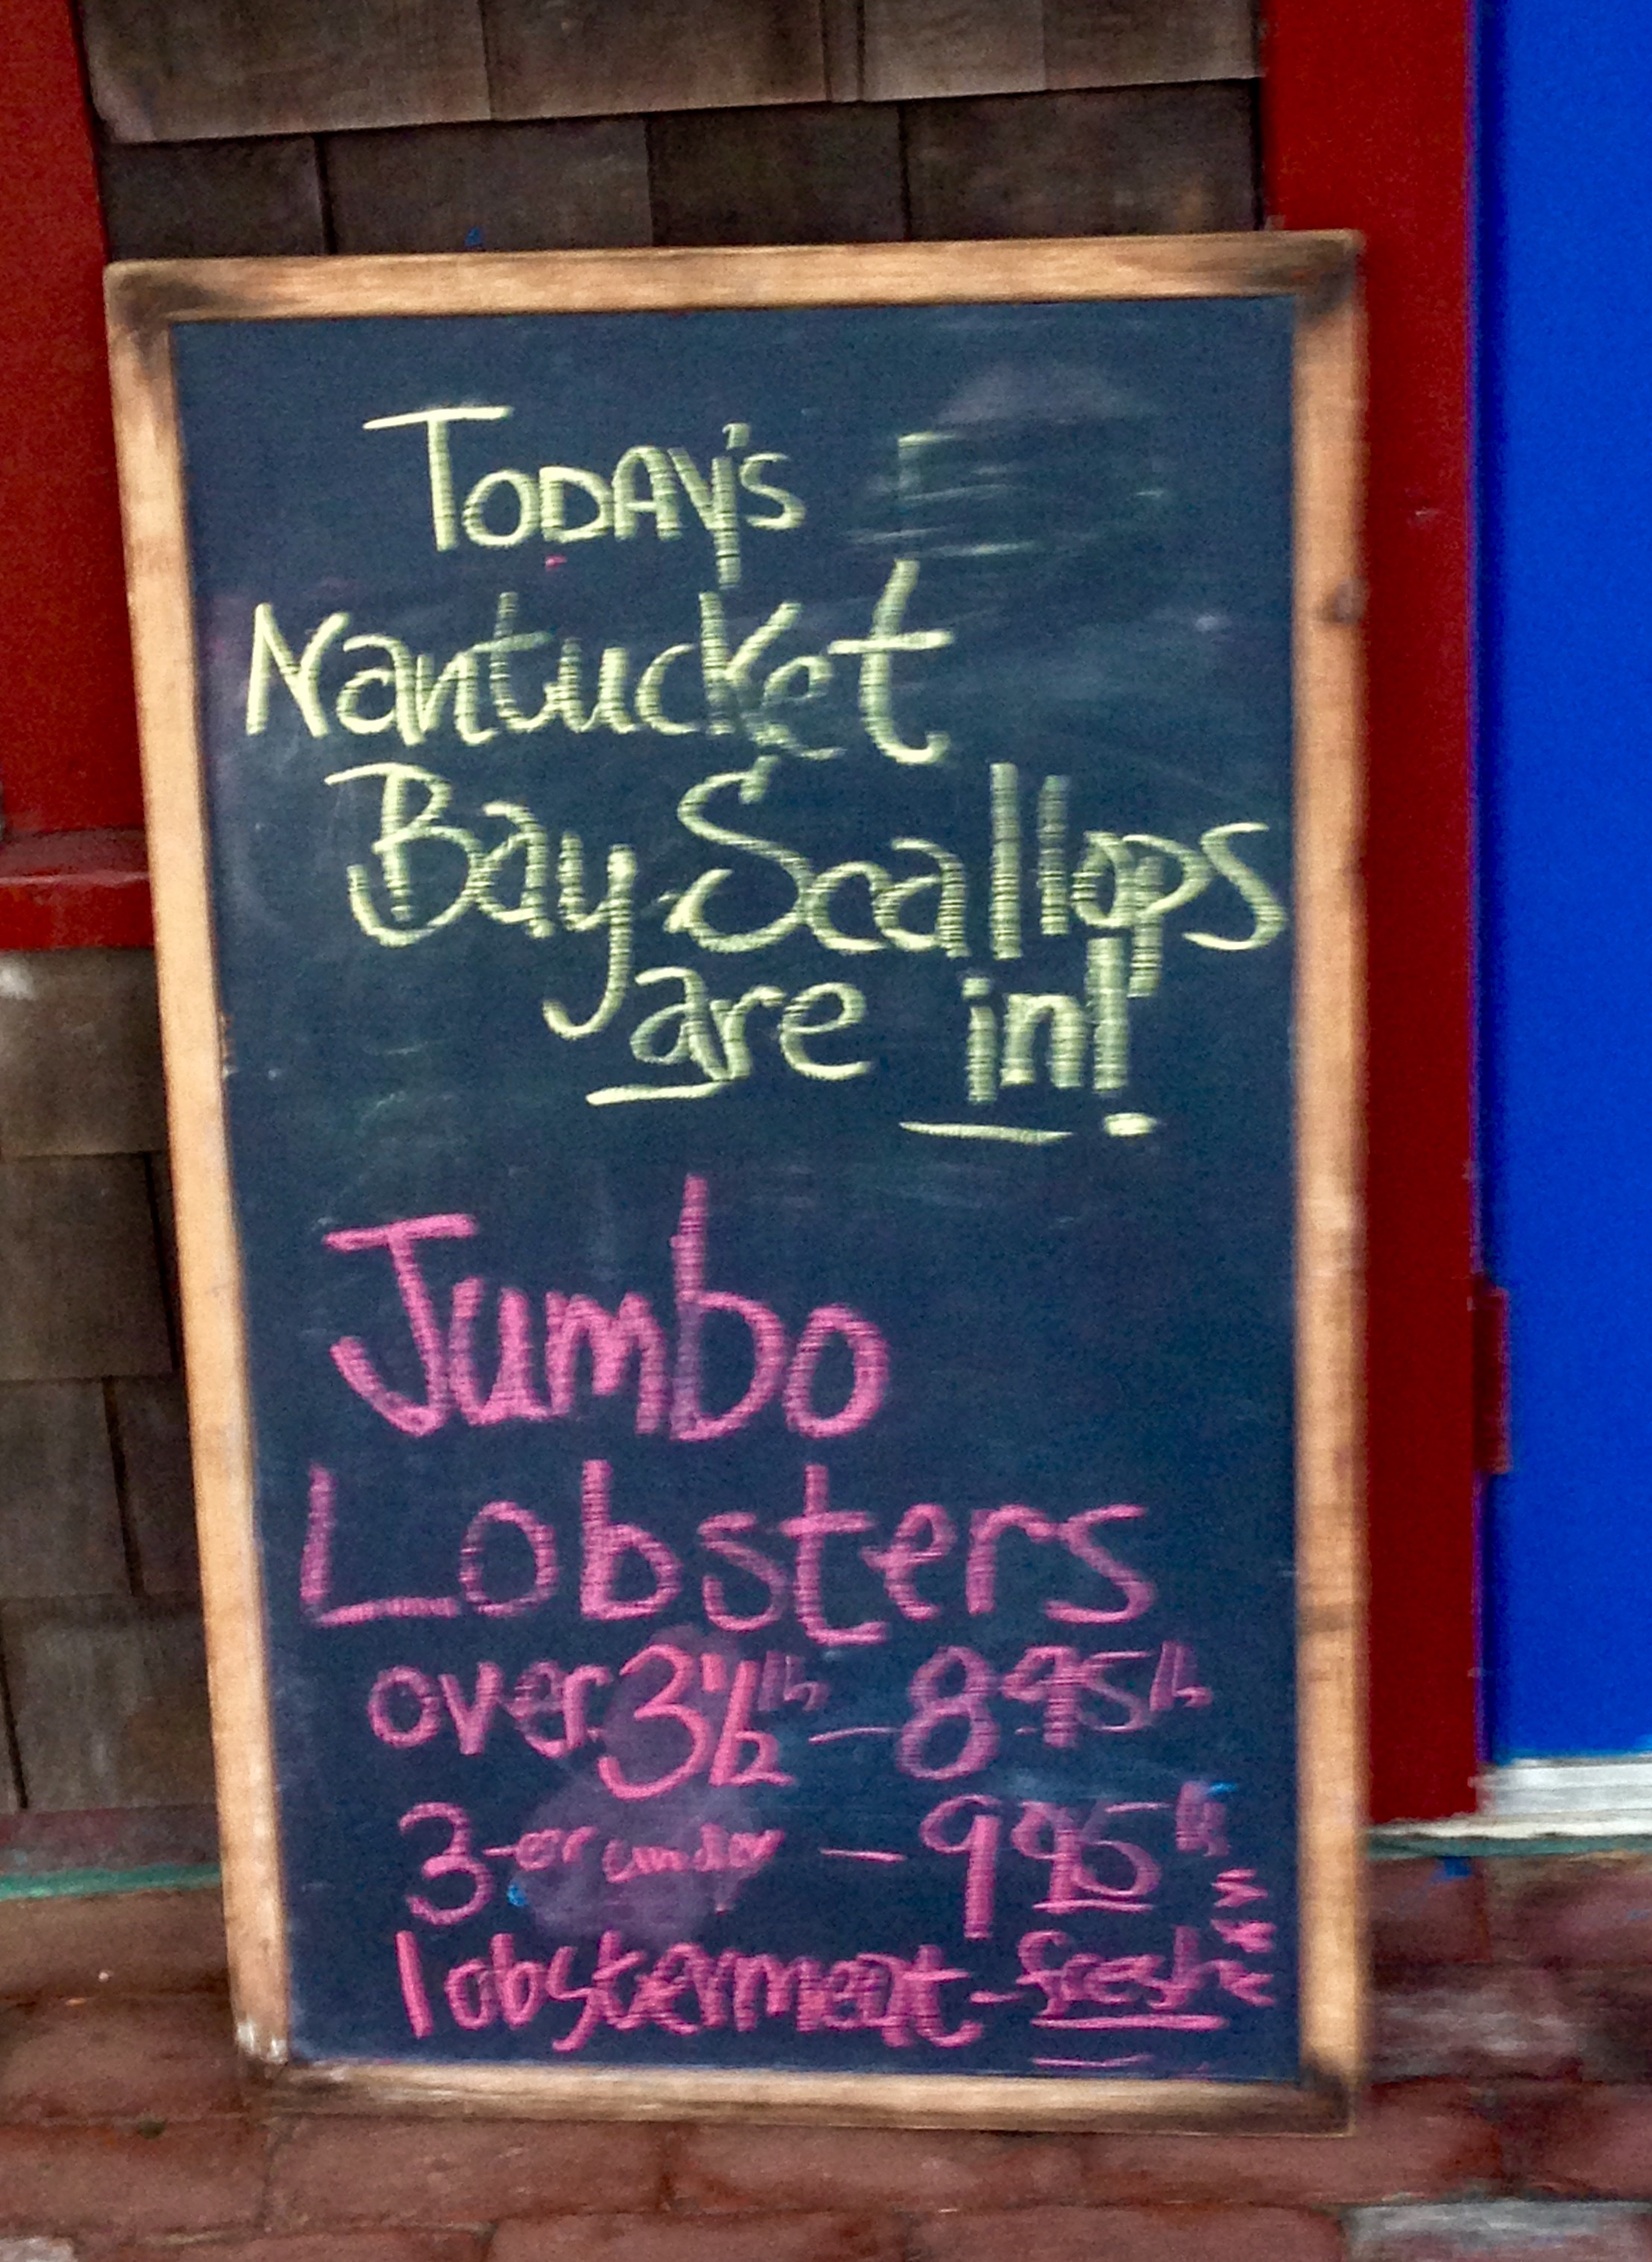 TODAY'S
Nantucket
Bay Scallops
are in!
Jumbo
Lobsters
over 3 1/2 lb - 8 95 lb
3 - or under - 9 95 lb
lobstermeat - fresh